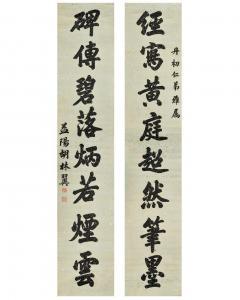 經寫黃庭超然筆墨
丹初仁弟雅屬
碑傳碧落炳若煙雲
益陽胡林翼